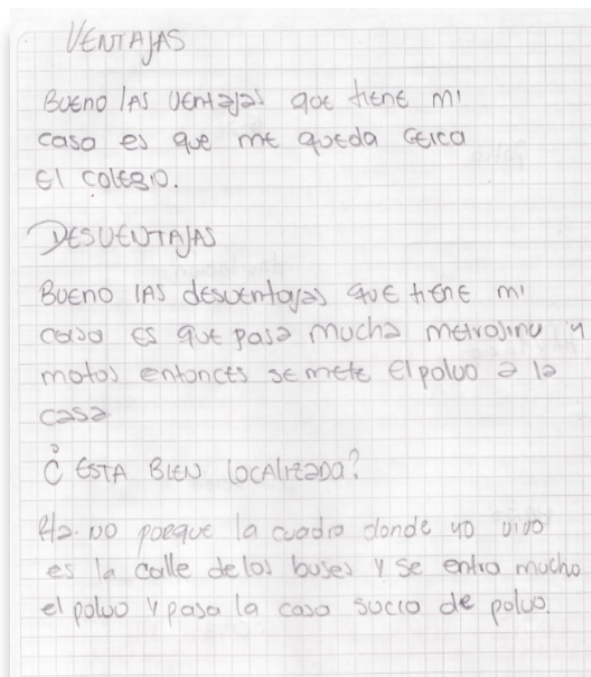 VENTAJAS
Bueno las ventajas que tiene mi
casa es que me queda cerca
el colegio.
DESVENTAJAS
Bueno las desventajas que tiene mi
casa es que pasa mucha metrolinu y
motos entonces se mete el polvo a la
casa
¿ESTA BIEN localizada?
Rta. no porque la cuadra donde yo vivo
es la calle de los buses y se entra mucho
el polvo y pasa la casa sucia de polvo.